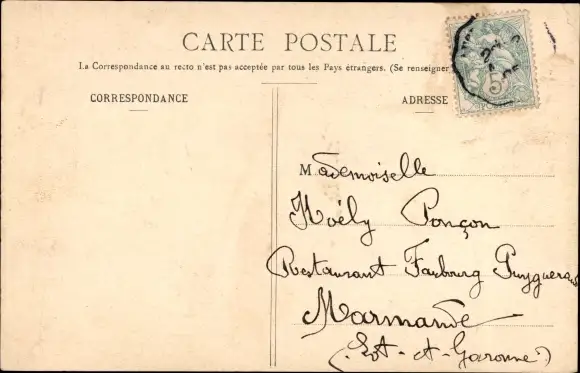 CARTE POSTALE
La Correspondance au recto n'est pas acceptée par tous les Pays étrangers. (Se renseigner
CORRESPONDANCE
ADRESSE
5
Mademoiselle
Noëly Ponçon
Restaurant Faubourg Puyguerand
Marmande
(Lot-et-Garonne)